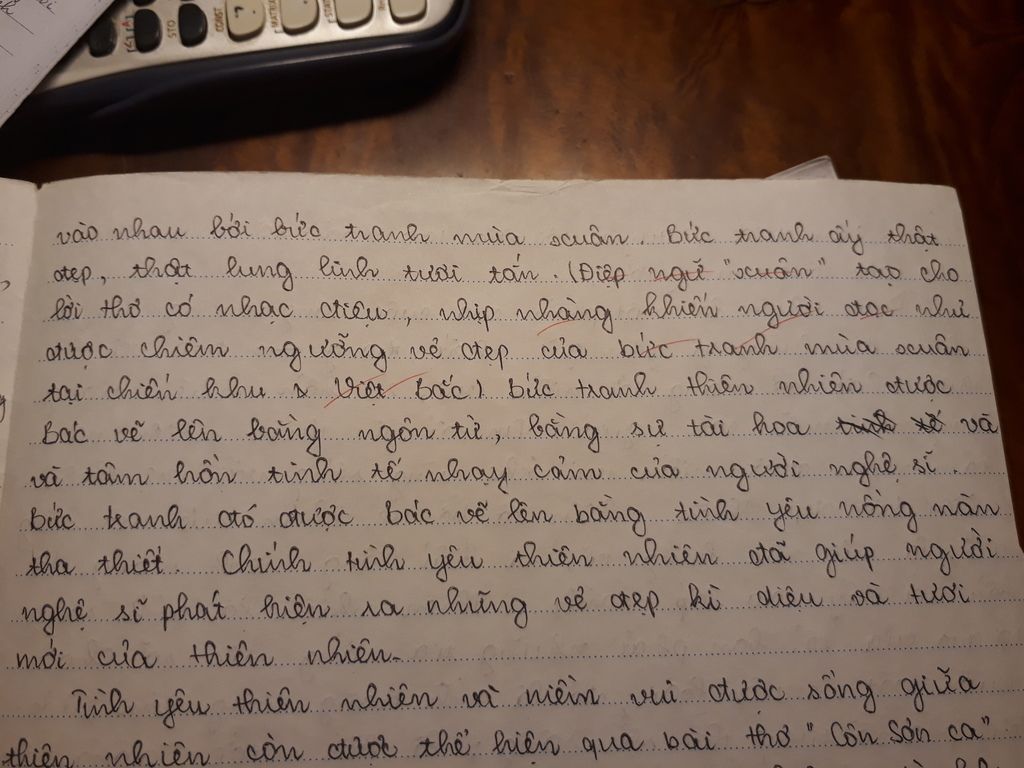 STO
CONST
MATRIX
vào nhau bởi bức tranh mùa xuân. Bức tranh ấy thật
đẹp, thật lung linh tươi tắn. (Điệp ngữ "xuân" tạo cho
lời thơ có nhạc điệu, nhịp nhàng khiến người đọc như
được chiêm ngưỡng vẻ đẹp của bức tranh mùa xuân
tại chiến khu Việt Bắc) Bức tranh thiên nhiên được
Bác vẽ lên bằng ngôn từ, bằng sự tài hoa tinh tế và
và tâm hồn tinh tế nhạy cảm của người nghệ sĩ.
Bức tranh đó được Bác vẽ lên bằng tình yêu nồng nàn
tha thiết. Chính tình yêu thiên nhiên đã giúp người
nghệ sĩ phát hiện ra những vẻ đẹp kì diệu và tươi
mới của thiên nhiên.
Tình yêu thiên nhiên và niềm vui được sống giữa
thiên nhiên còn được thể hiện qua bài thơ "Côn Sơn ca"